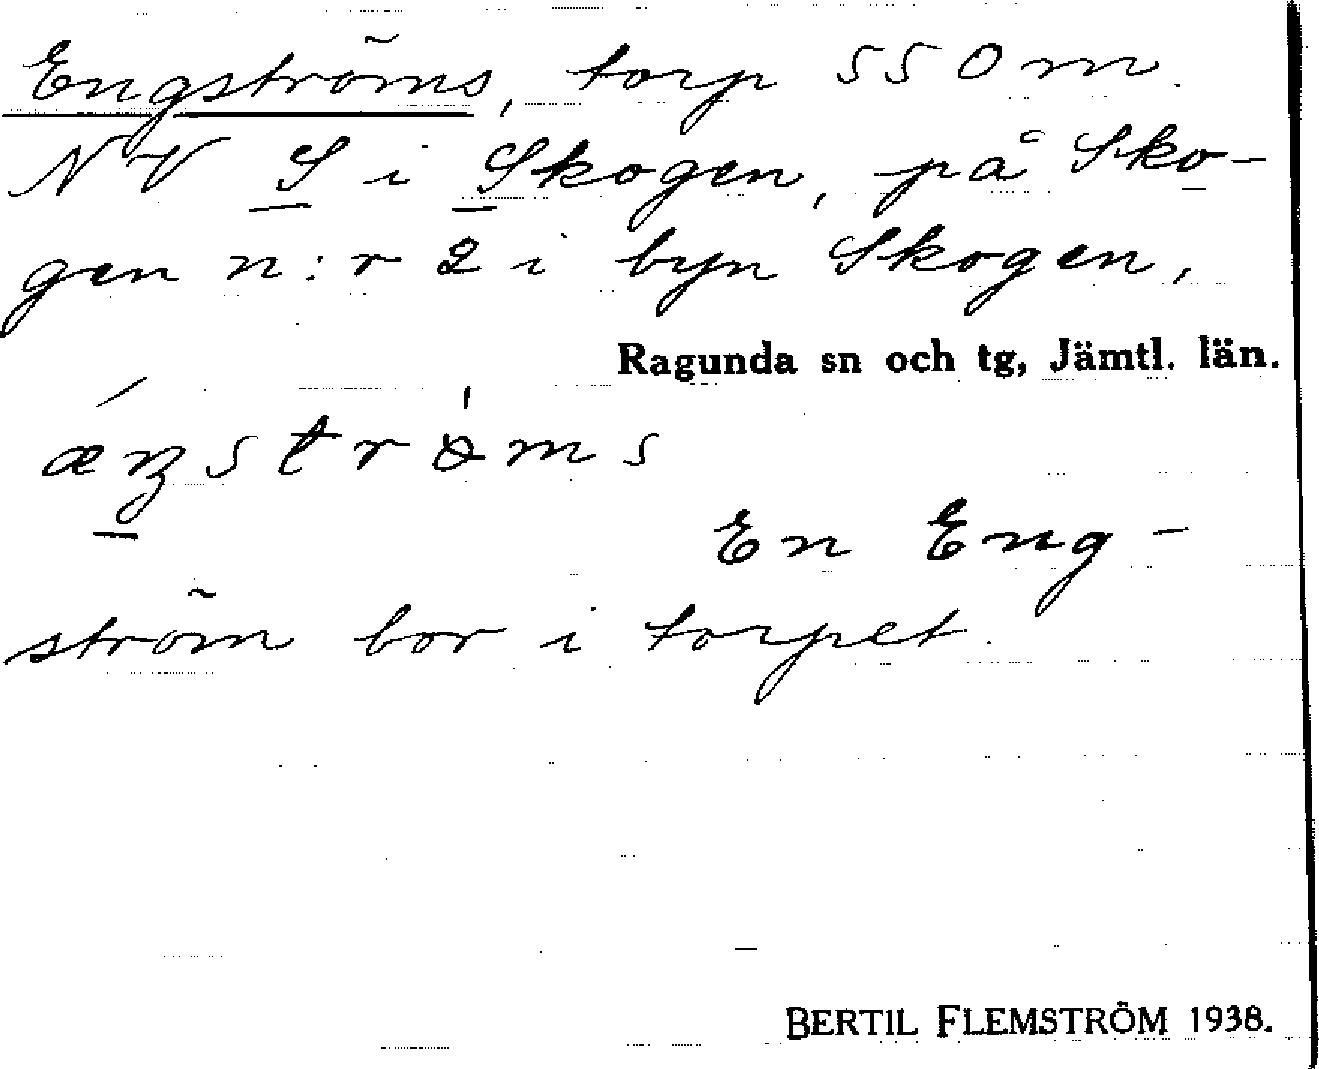 Engströms, torp 550 m
NV S i Skogen, på Sko-
gen n:r 2 i byn Skogen,
Ragunda sn och tg, Jämtl. län.
ǽŋströ̀ms
En Eng-
ström bor i torpet.
BERTIL FLEMSTRÖM 1938.